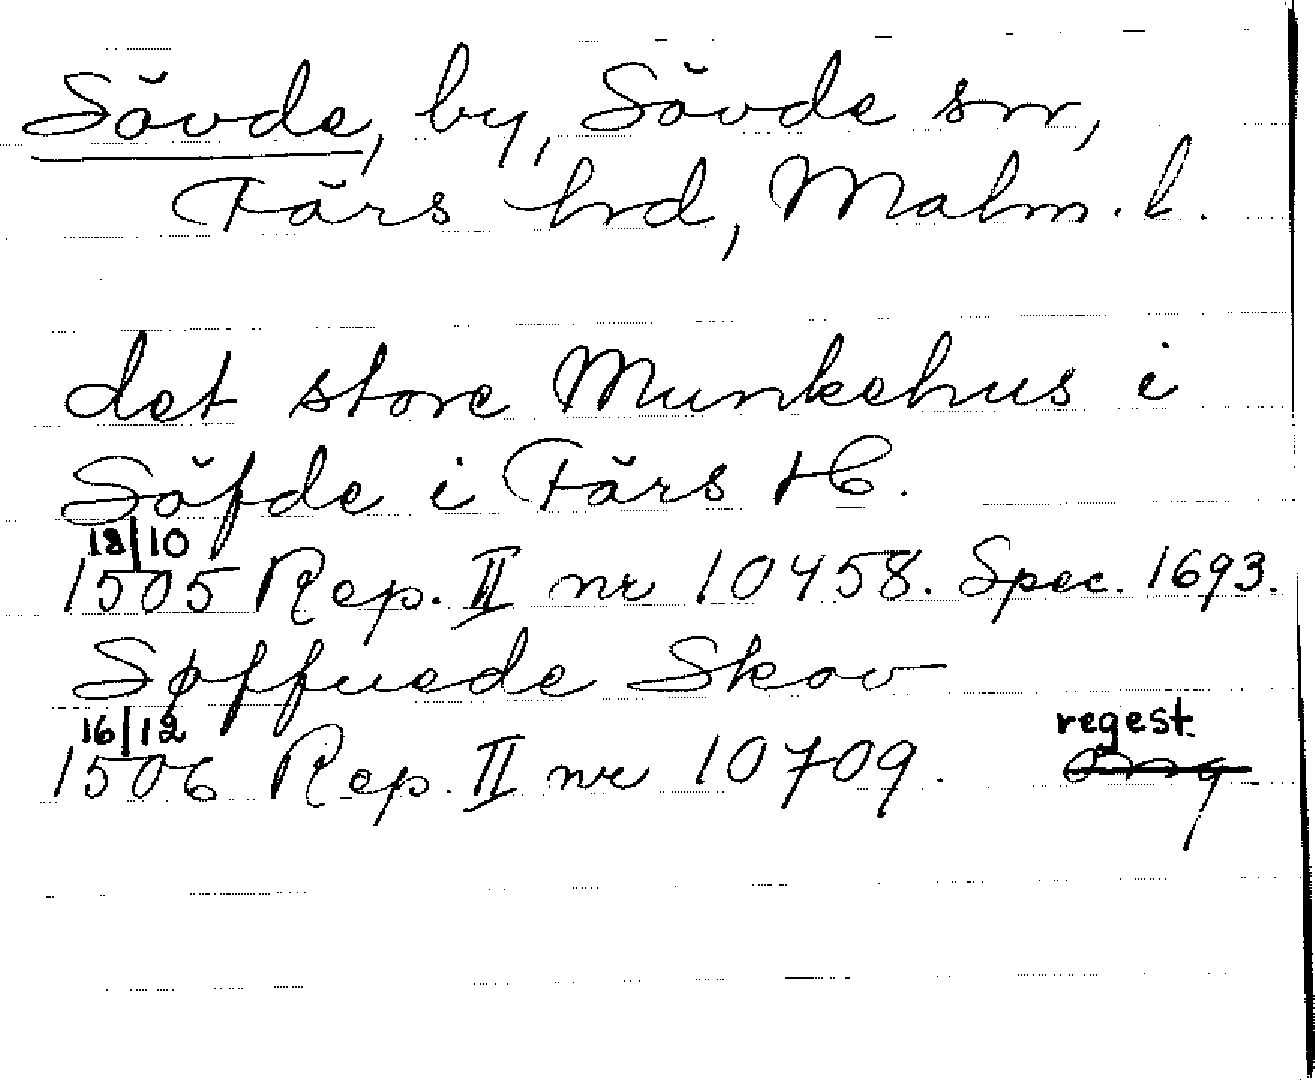 Sövde, by, Sövde snr,
Färs hrd, Malm. l.
det store Munkehus i
Söfde i Färs H.
18/10
1505 Rep. II nr 10458. Spec. 1693.
Søffuede Skov
16/12 regest.
1506 Rep. II nr 10709.